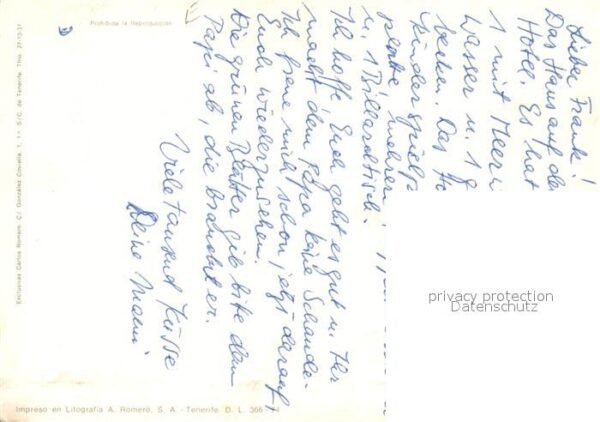 Lieber Frank!
Das Haus auf der
Hotel. Es hat
1 mit Meer
wasser u. 1
becken. Das Ho
Kinderspielp
platz mehrere
u. 1 Billardtisch!
Ich hoffe Euch geht es gut u. Ihr
macht dem Papa keine Schande.
Ich freue mich schon jetzt darauf,
Euch wiederzusehen.
Die grünen Blätter gib bitte dem
Papi ab, die braucht er.
Viele tausend Küsse
Deine Mami
Prohibida la Reproducción
Exclusivas Carlos Romero. C/. González Coviella, 1, 1.º S/C. de Tenerife. Tfno. 27-13-31
Impreso en Litografía A. Romero, S. A. - Tenerife. D. L. 366
privacy protection
Datenschutz